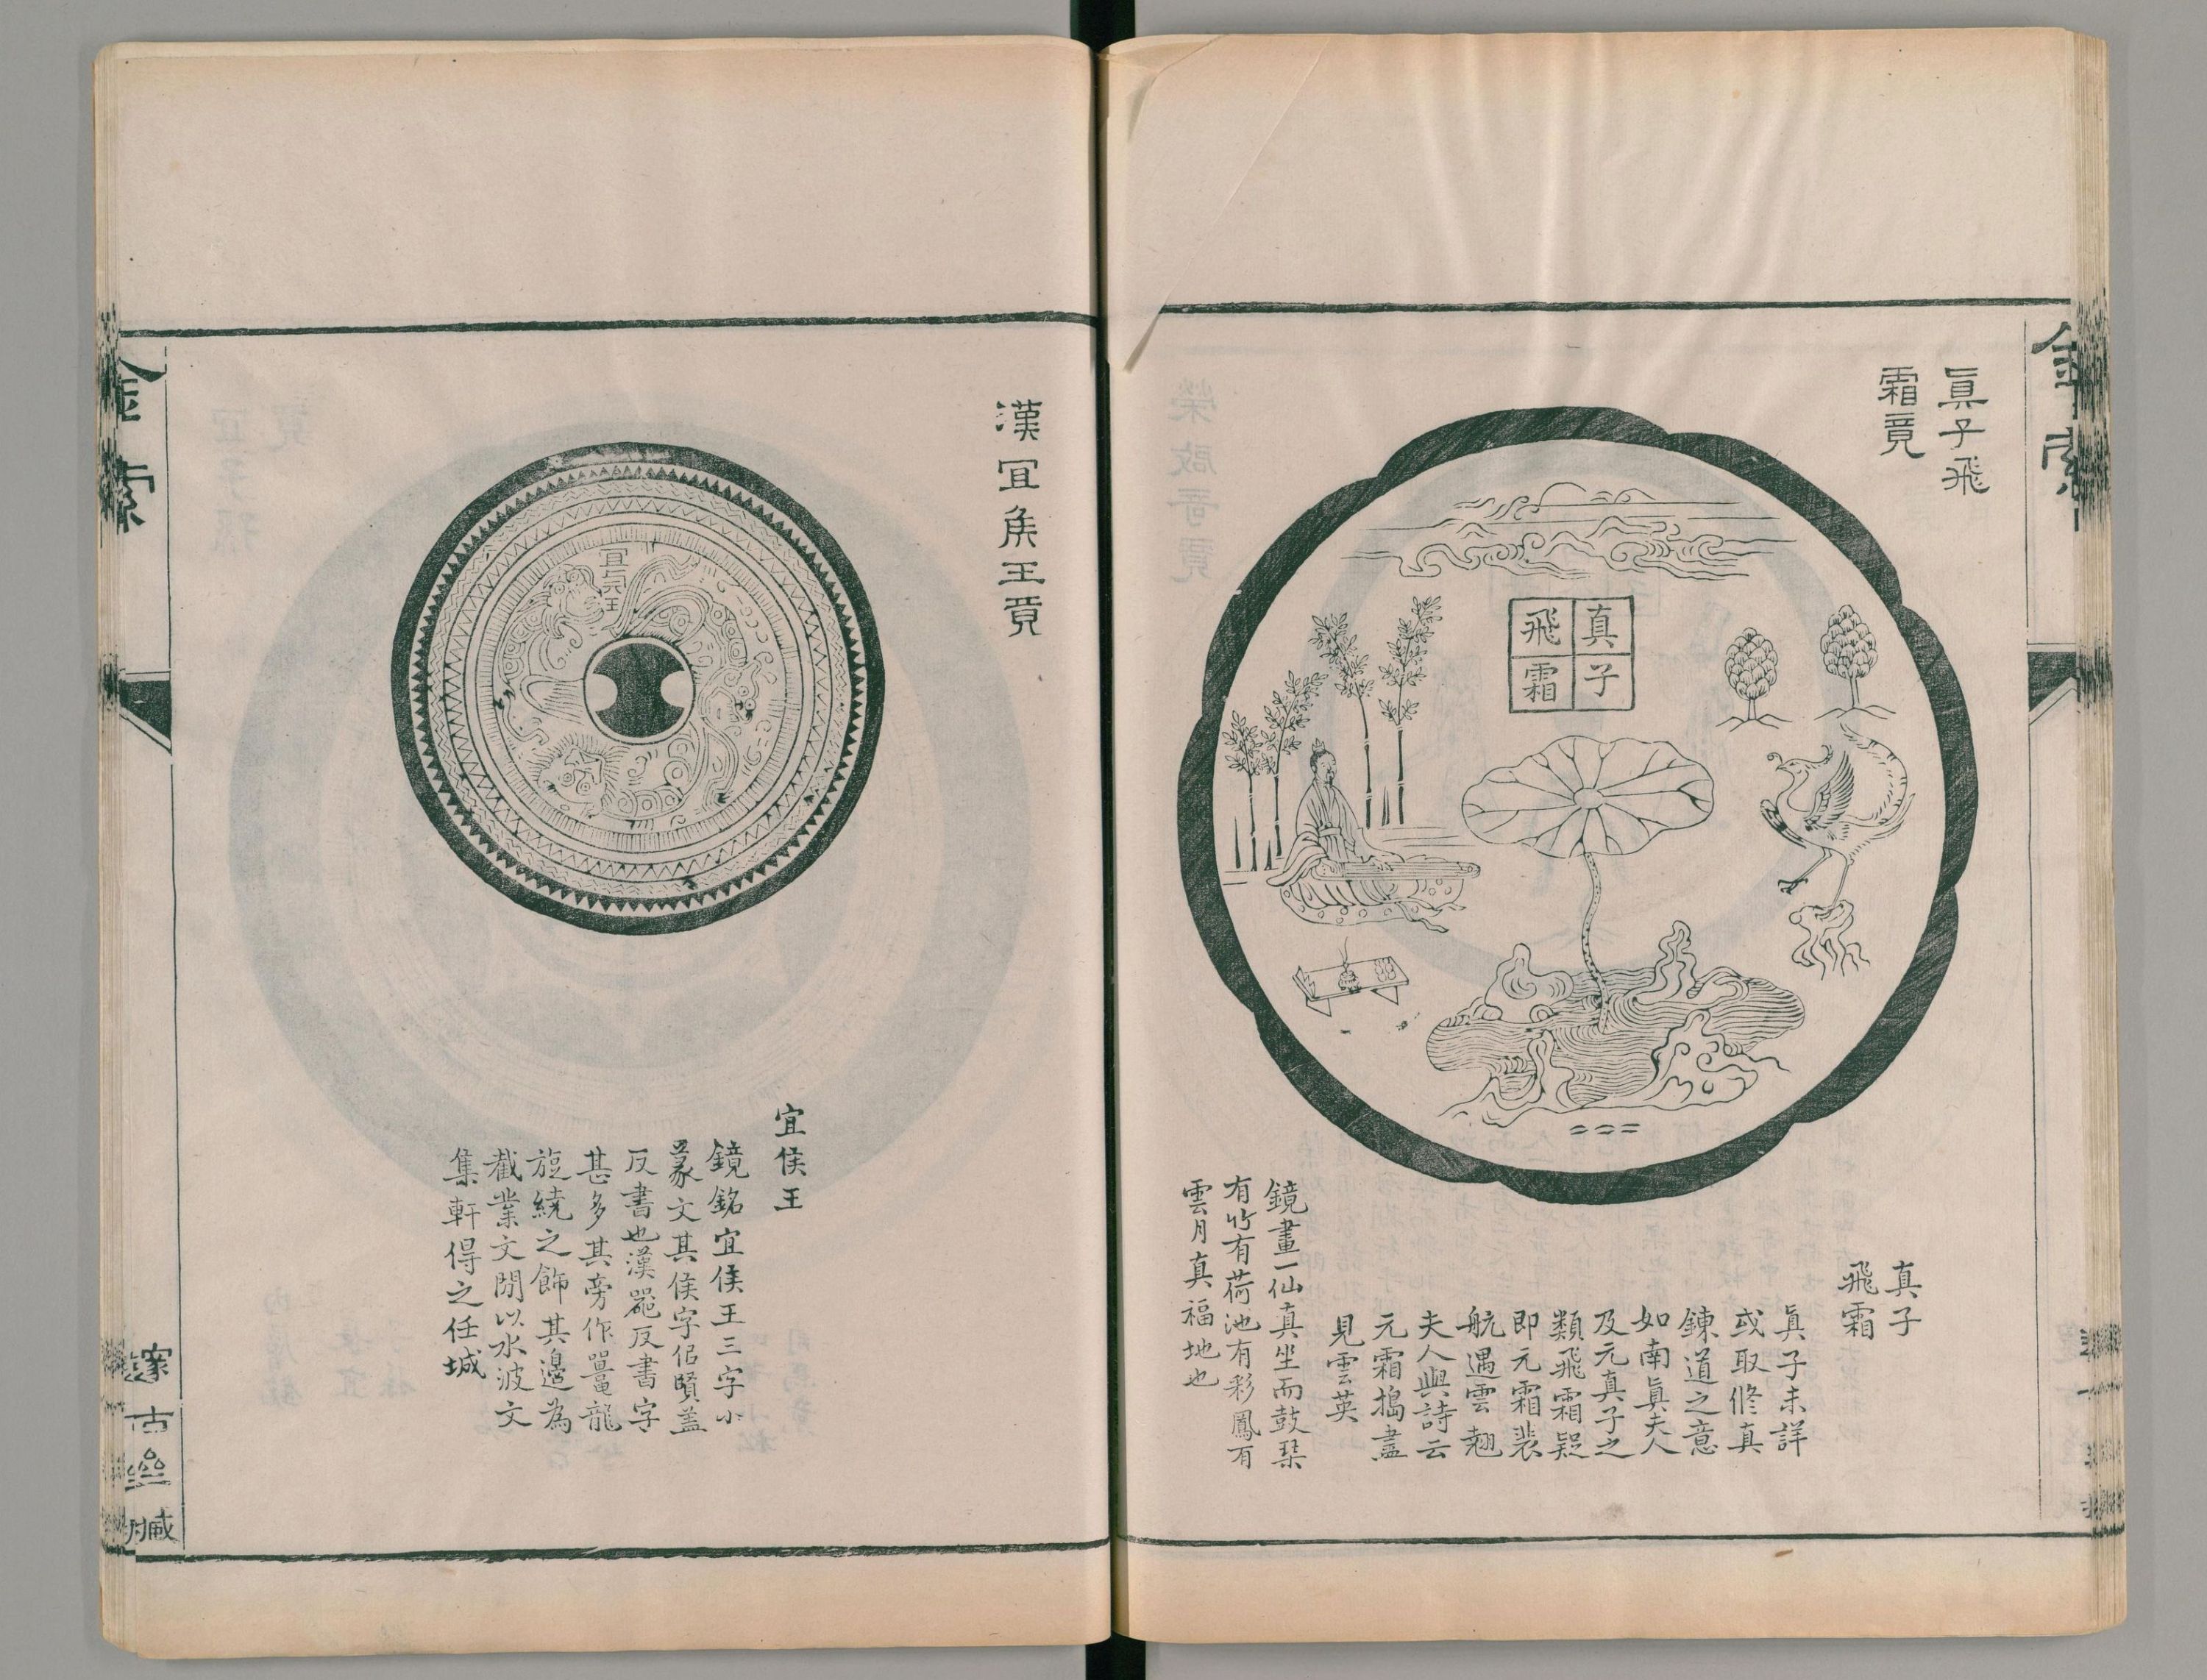 金索
真子飛
霜竟
真子
飛霜
真子
飛霜
眞子未詳
或取修真
錬道之意
如南眞夫人
及元真子之
類飛霜疑
即元霜裴
航遇雲翹
夫人與詩云
元霜搗盡
見雲英
鏡畫一仙真坐而鼓琹
有竹有荷池有彩鳳有
雲月真福地也
漢宜矦王竟
宜矦王
宜侯王
鏡銘宜侯王三字小
篆文其侯字侣賢蓋
反書也漢器反書字
甚多其旁作鼉龍
旋繞之飾其邊為
𢧵業文閒以水波文
集軒得之任城
金索
邃古𡋯臧